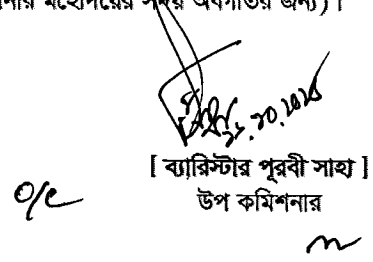 মহোদয়ের সদয় অবগতির জন্য)।
[ ব্যারিস্টার পূরবী সাহা ]
উপ কমিশনার
o/c